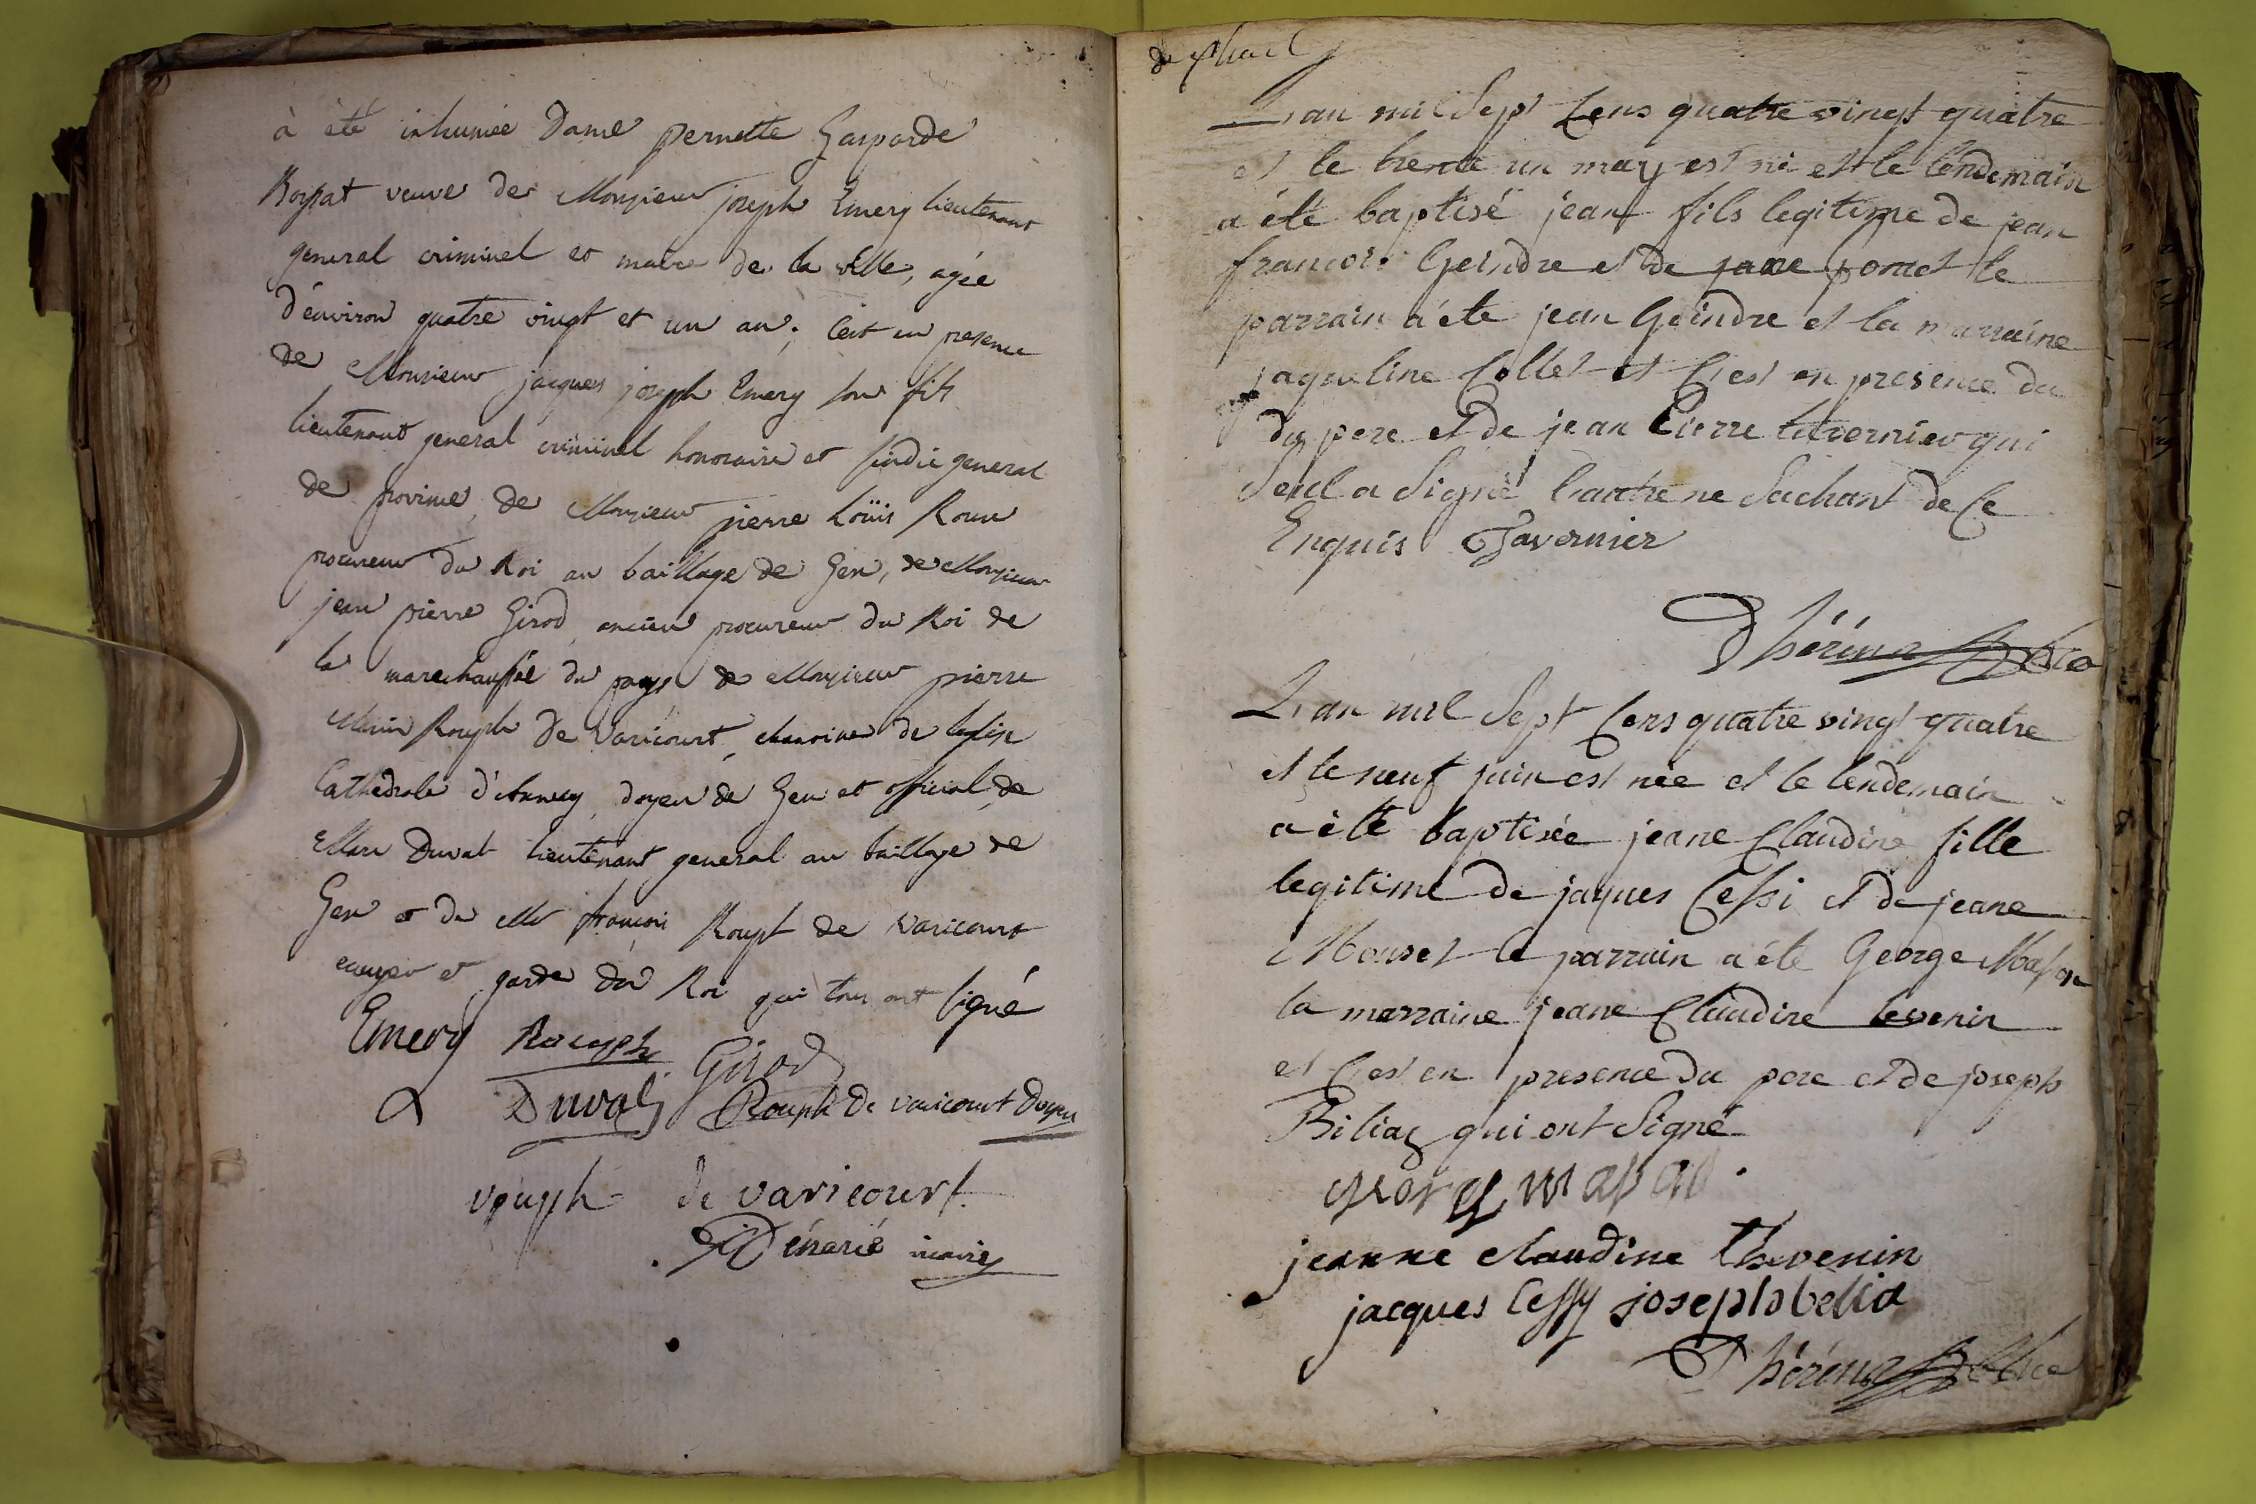 à été inhumée Dame pernette Gasparde
veuve de Monsieur joseph Emery lieutenant
general criminel et maire de la ville, agée
d'environ quatre vingt et un an; C'est en presence
de Monsieur jacques joseph Emery son fils
lieutenant general criminel honoraire et sindic general
de province, de Monsieur pierre Loüis Roux
procureur du Roi au baillage de Gex, de Monsieur
jean pierre Girod, ancien procureur du Roi de
la marechaussée du pays de Monsieur pierre
Marin Rouph de Varicourt, chanoine de leglise
Cathedrale d'Annecy, doyen de Gex et official, de
Marc Duval lieutenant general au baillage de
Gex et de Mr francois Rouph de Varicourt
ecuyer et garde du Roi qui tous ont signé
Emery Girod
Duval Rouph de varicourt doyen
rouph de varicourt
Dénarié vicaire
L'an mil Sept Cens quatre vingt quatre
et le trente un may est né et le lendemain
a été baptisé jean fils legitime de jean
francois Geindre et de jane ponct le
parrain a été jean Geindre et la marraine
jaqueline Collet et C'est en presence du
dy pere et de jean Pierre tavernier qui
Seul a Signé l'autre ne Sachant de Ce
Enquis Tavernier
L'an mil Sept Cens quatre vingt quatre
et le neuf juin est née et le lendemain
a été baptisée jeane Claudine fille
legitime de jaques Cessi et de jeane
Mouset le parrain a été George Masson
la marraine jeane Claudine tevenin
et C'est en presence du pere et de joseph
Biliac qui ont Signé
jeanne claudine thevenin
jacques Cessy joseph belia